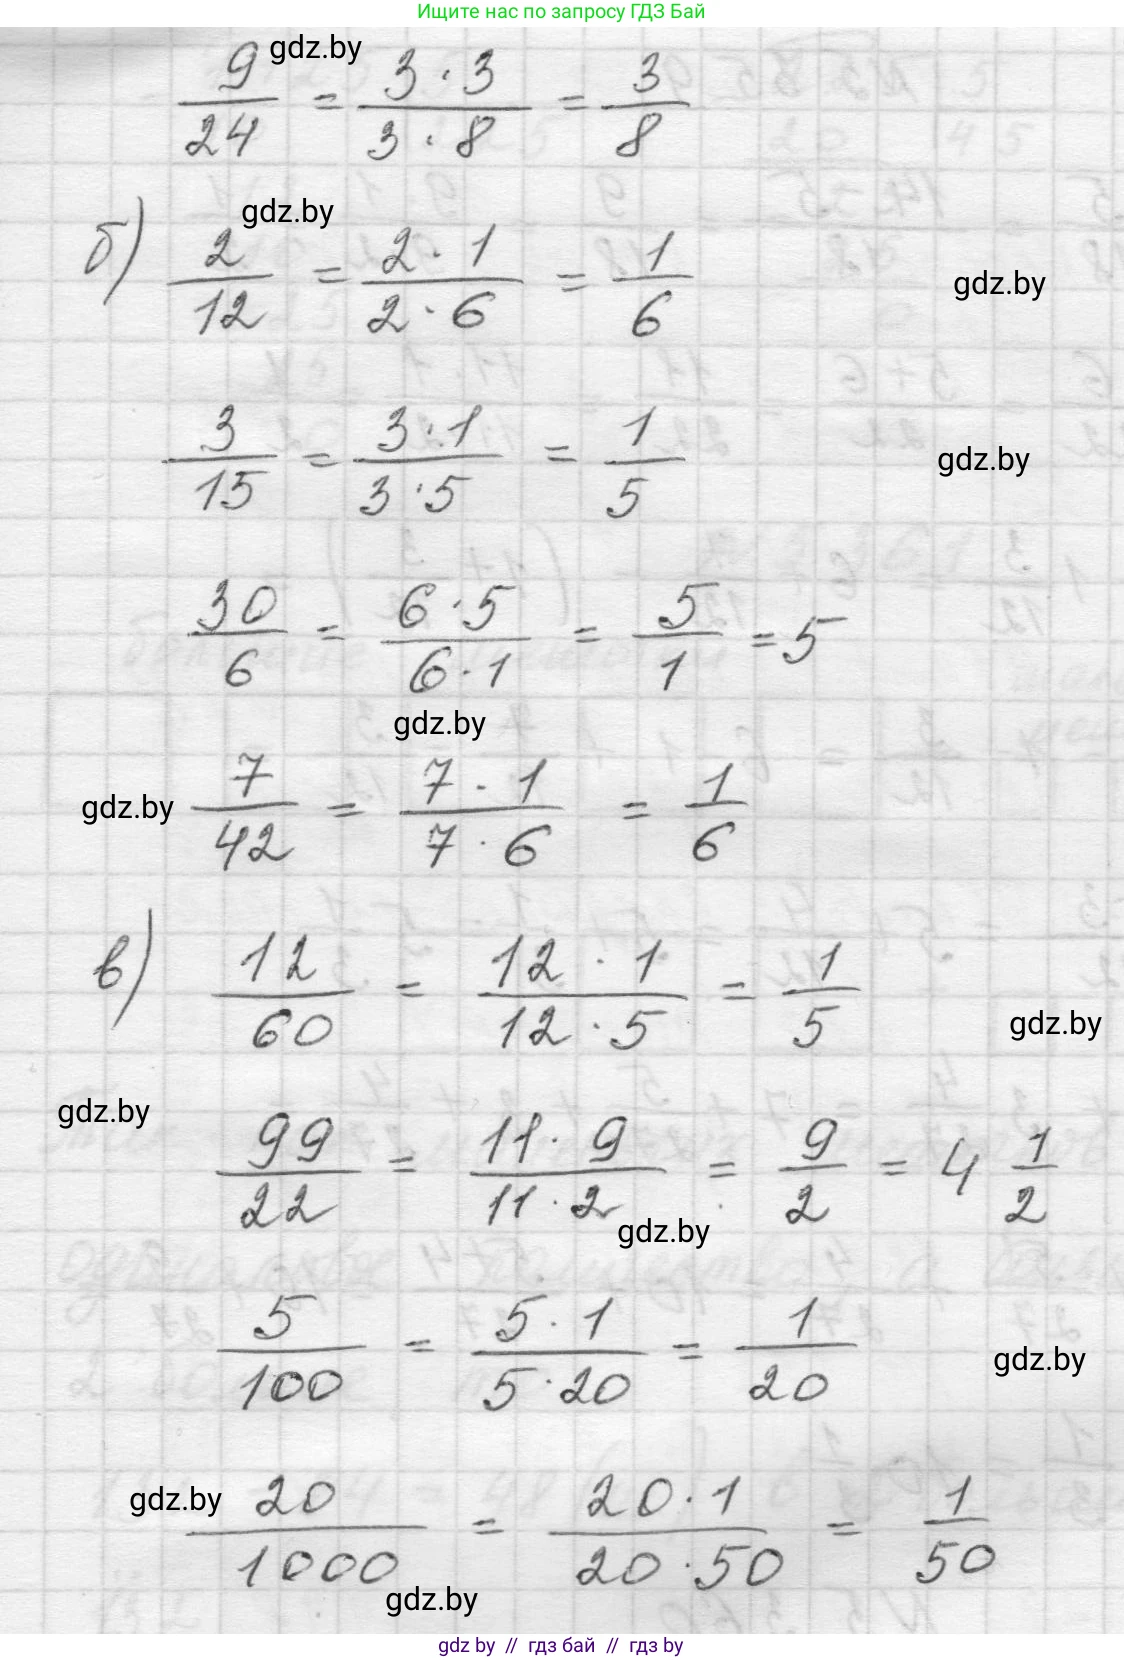 Ищите нас по запросу ГДЗ Бай
gdz.by
9/24 = 3·3/3·8 = 3/8
gdz.by
б) 2/12 = 2·1/2·6 = 1/6
gdz.by
3/15 = 3·1/3·5 = 1/5
gdz.by
30/6 = 6·5/6·1 = 5/1 = 5
gdz.by
gdz.by
7/42 = 7·1/7·6 = 1/6
в) 12/60 = 12·1/12·5 = 1/5
gdz.by
gdz.by
99/22 = 11·9/11·2 = 9/2 = 4 1/2
gdz.by
5/100 = 5·1/5·20 = 1/20
gdz.by
gdz.by
20/1000 = 20·1/20·50 = 1/50
gdz.by
gdz by // гдз бай // гдз by